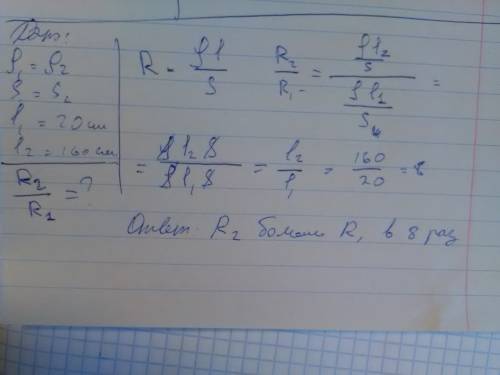 Дано:
ρ₁ = ρ₂
S = S₂
l₁ = 20 см
l₂ = 160 см
R₂/R₁ = ?
R = ρl/S   R₂/R₁ = (ρl₂/S)/(ρl₁/S) =
= ρl₂S/ρl₁S = l₂/l₁ = 160/20 = 8
Ответ: R₂ больше R₁ в 8 раз